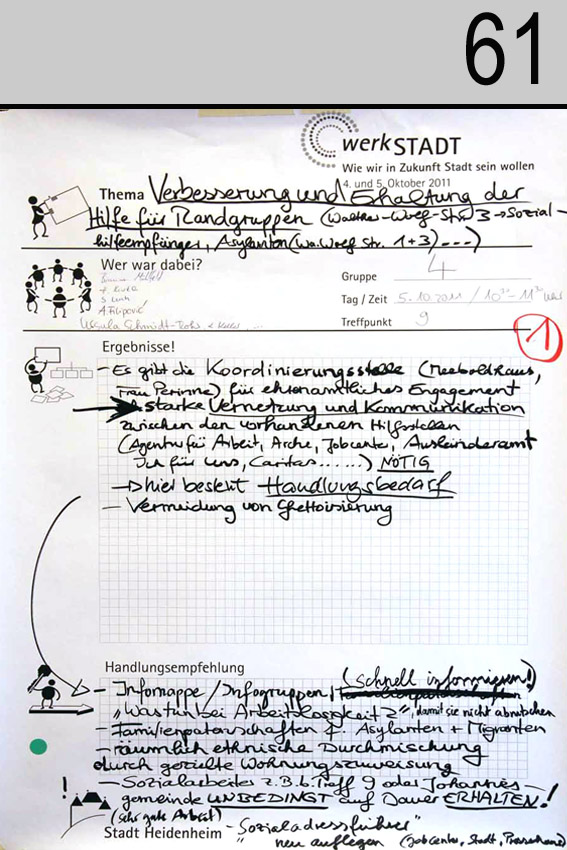 61
werkSTADT
Wie wir in Zukunft Stadt sein wollen
4. und 5. Oktober 2011
Thema Verbesserung und Erhaltung der
Hilfe für Randgruppen (Walther-Wolf-Str. 3 → Sozial-
hilfeempfänger, Asylanten (Wa.Wolf Str. 1+3) ---)
Wer war dabei?
S. Linh
A. Filipović
Ursula Schmidt
Gruppe 4
Tag / Zeit 5.10.2011 / 10³⁰ - 11³⁰ Uhr
Treffpunkt 9
1
Ergebnisse!
- Es gibt die Koordinierungsstelle (Meeboldhaus,
Frau Perinne) für ehrenamtliches Engagement
starke Vernetzung und Kommunikation
zwischen den vorhandenen Hilfsstellen
(Agentur für Arbeit, Arche, Jobcenter, Ausländeramt
Ich für uns, Caritas......) NÖTIG
→ hier besteht Handlungsbedarf
- Vermeidung von Ghettoisierung
Handlungsempfehlung
(schnell informieren!)
- Infomappe / Infogruppen
"Was tun bei Arbeitslosigkeit?", damit sie nicht abrutschen
- Familienpatenschaften f. Asylanten + Migranten
- räumlich ethnische Durchmischung
durch gezielte Wohnungszuweisung
- Sozialarbeiter z.B. b. Treff 9 oder Johannes-
gemeinde UNBEDINGT auf Dauer ERHALTEN!
!
(sehr gute Arbeit)
Stadt Heidenheim
- "Sozialadressführer"
neu auflegen (Jobcenter, Stadt,